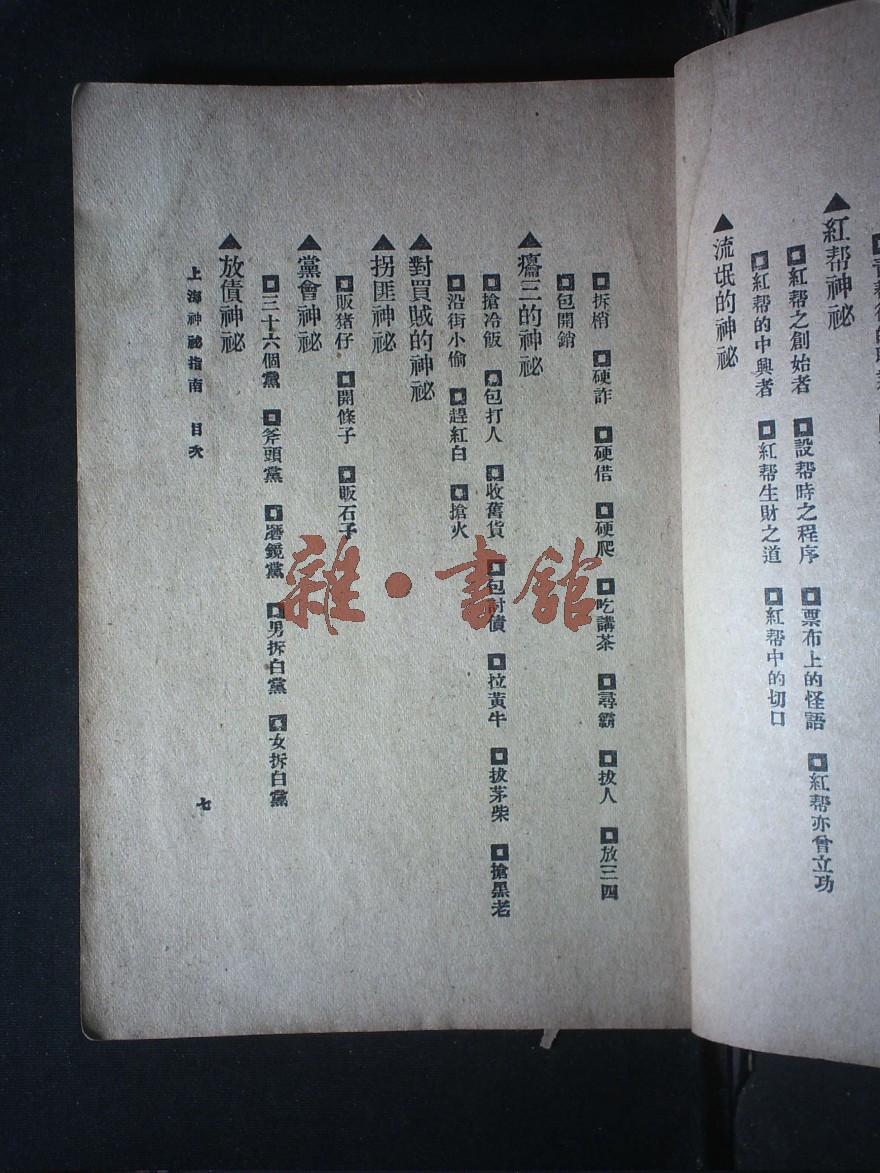 ▲紅帮神祕
◘紅帮之創始者 ◘設帮時之程序 ◘票布上的怪語 ◘紅帮亦曾立功
◘紅帮的中興者 ◘紅帮生財之道 ◘紅帮中的切口
▲流氓的神祕
◘拆梢 ◘硬詐 ◘硬借 ◘硬爬 ◘吃講茶 ◘尋霸 ◘拔人 ◘放三四
◘包開銷
▲癟三的神祕
◘搶冷飯 ◘包打人 ◘收舊貨 ◘包討債 ◘拉黃牛 ◘拔茅柴 ◘搶黑老
◘沿街小偷 ◘趕紅白 ◘搶火
▲對買賊的神祕
▲拐匪神祕
◘販猪仔 ◘開條子 ◘販石子
▲黨會神祕
◘三十六個黨 ◘斧頭黨 ◘磨鏡黨 ◘男拆白黨 ◘女拆白黨
▲放債神祕
上海神祕指南 目次
七
雜·書館